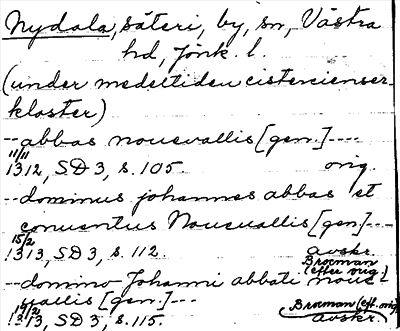 Nydala, säteri, by, sn, Västra
hd, Jönk. l.
(under medeltiden cistercienser-
kloster)
-- abbas nouevallis [gen.] ----
11/11
1312, SD 3, s. 105. orig.
-- dominus johannes abbas et
conuentus Noueuallis [gen.] ---
15/2
1313, SD 3, s. 112. avskr.
Brocman
(efter orig.)
-- domino Johanni abbati noue-
uallis [gen.] ---
1313, SD 3, s. 115. Brocman (eft. orig.)
avskr.